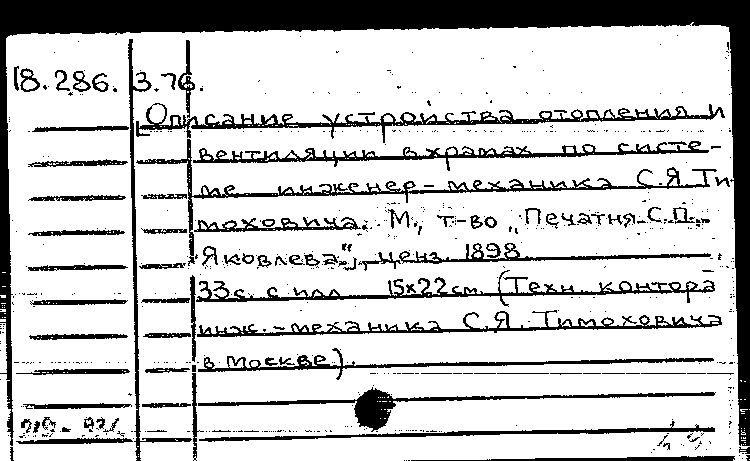 18.286. 3.76.
Описание устройства отопления и
вентиляции в храмах по систе-
ме инженер-механика С.Я. Ти-
моховича. М., т-во „Печатня С.П.
Яковлева", ценз. 1898.
33с. с илл 15х22см. (Техн. контора
инж.-механика С.Я. Тимоховича
в Москве).